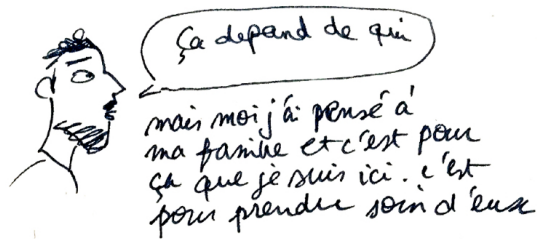 ça depand de qui
mais moi j'ai pensé à
ma famille et c'est pour
ça que je suis ici. c'est
pour prendre soin d'eux